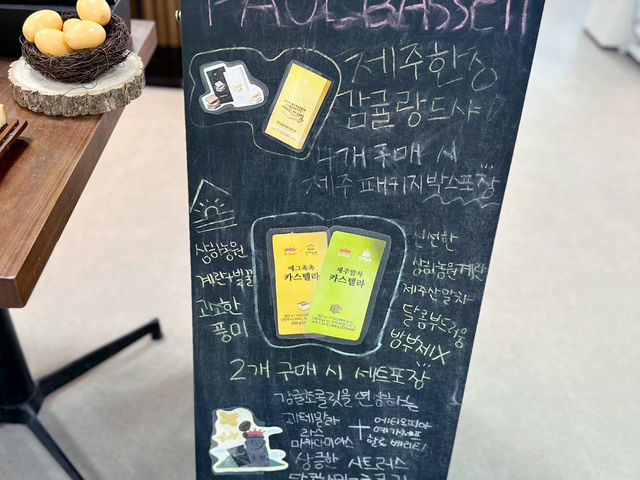 PAUL BASSETT
제주한상
감귤랑드샤
4개 구매 시
제주 패키지 박스포장
상하농원
계란&벌꿀
고소한
풍미
에그촉촉
카스텔라
제주말차
카스텔라
신선한
상하농원계란
제주산말차
달콤부드러움
방부제X
2개 구매 시 세트포장
감귤초콜릿을 연상하는
과테말라
라스
마카다미아스
+
에티오피아
예가체프
할로 베리티
상큼한 시트러스